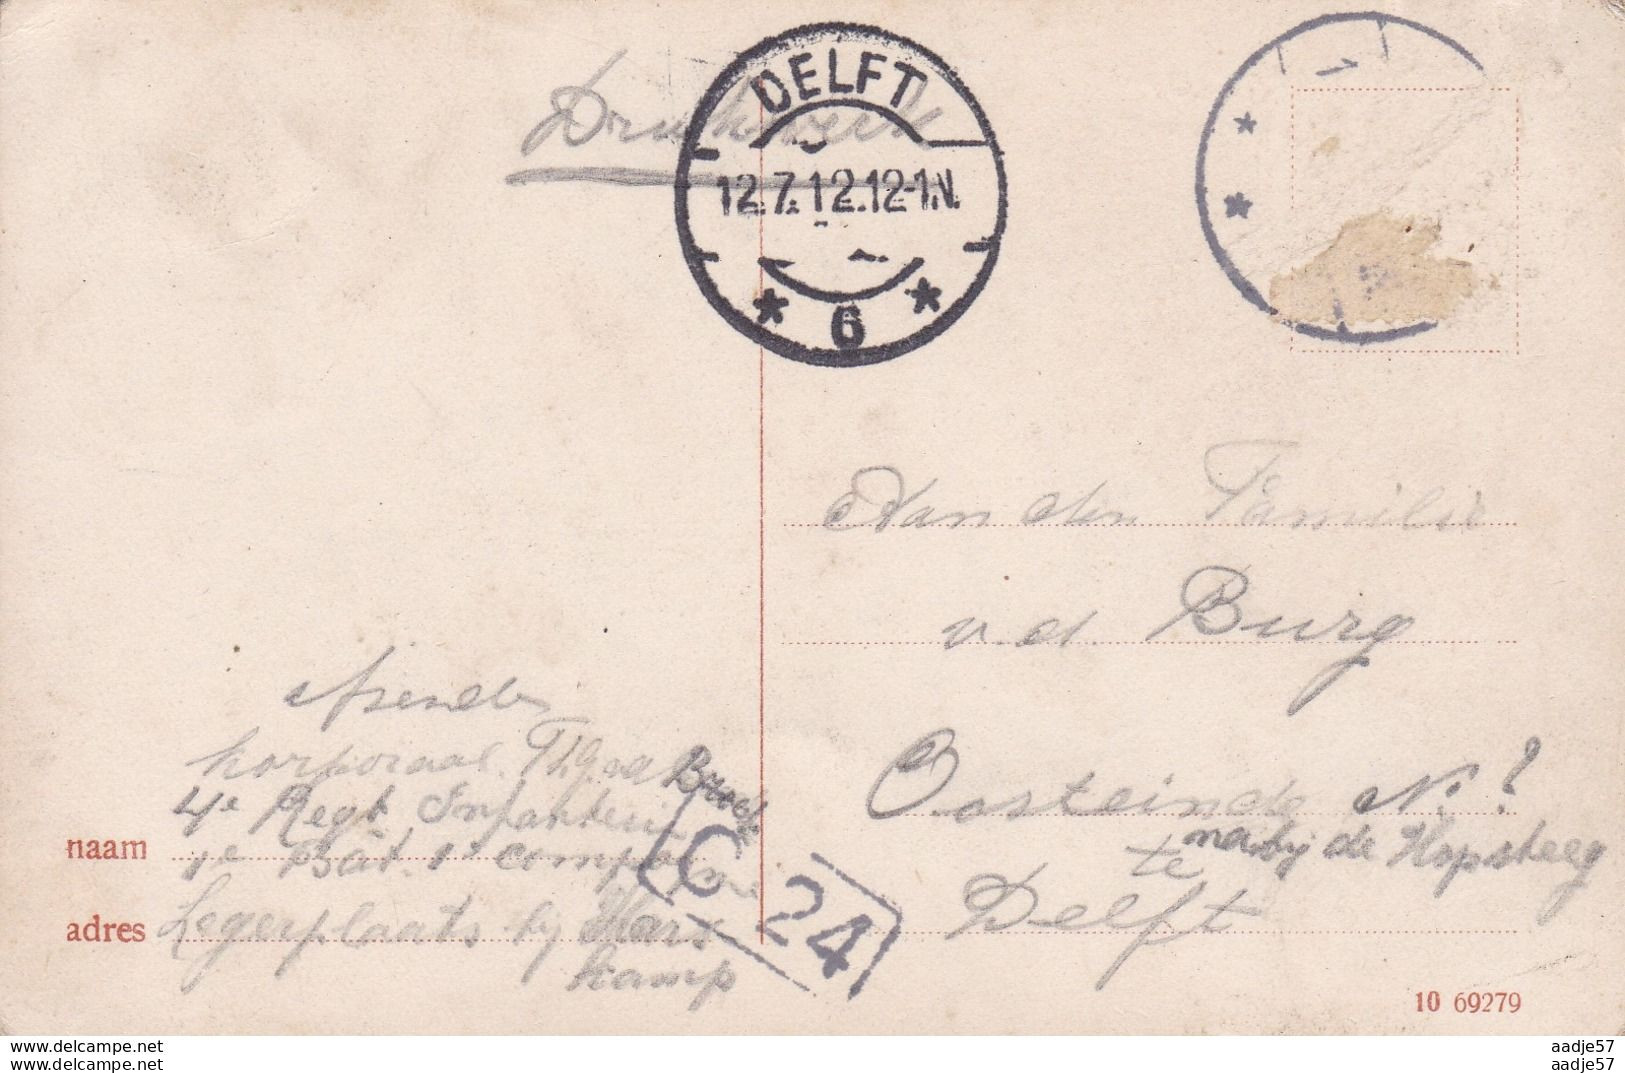 Drukwerk
DELFT
12.7.12.12-1N.
6
Aan den Familie
v d Burg
Oosteinde No ?
nabij de Hopsteeg
te
Delft
Afzender
korporaal Th G vd Broek
4e Regt Infanterie
naam 1e Bat. 1e compagnie
adres Legerplaats bij Hars
kamp
C 24
10 69279
www.delcampe.net
www.delcampe.net
aadje57
aadje57